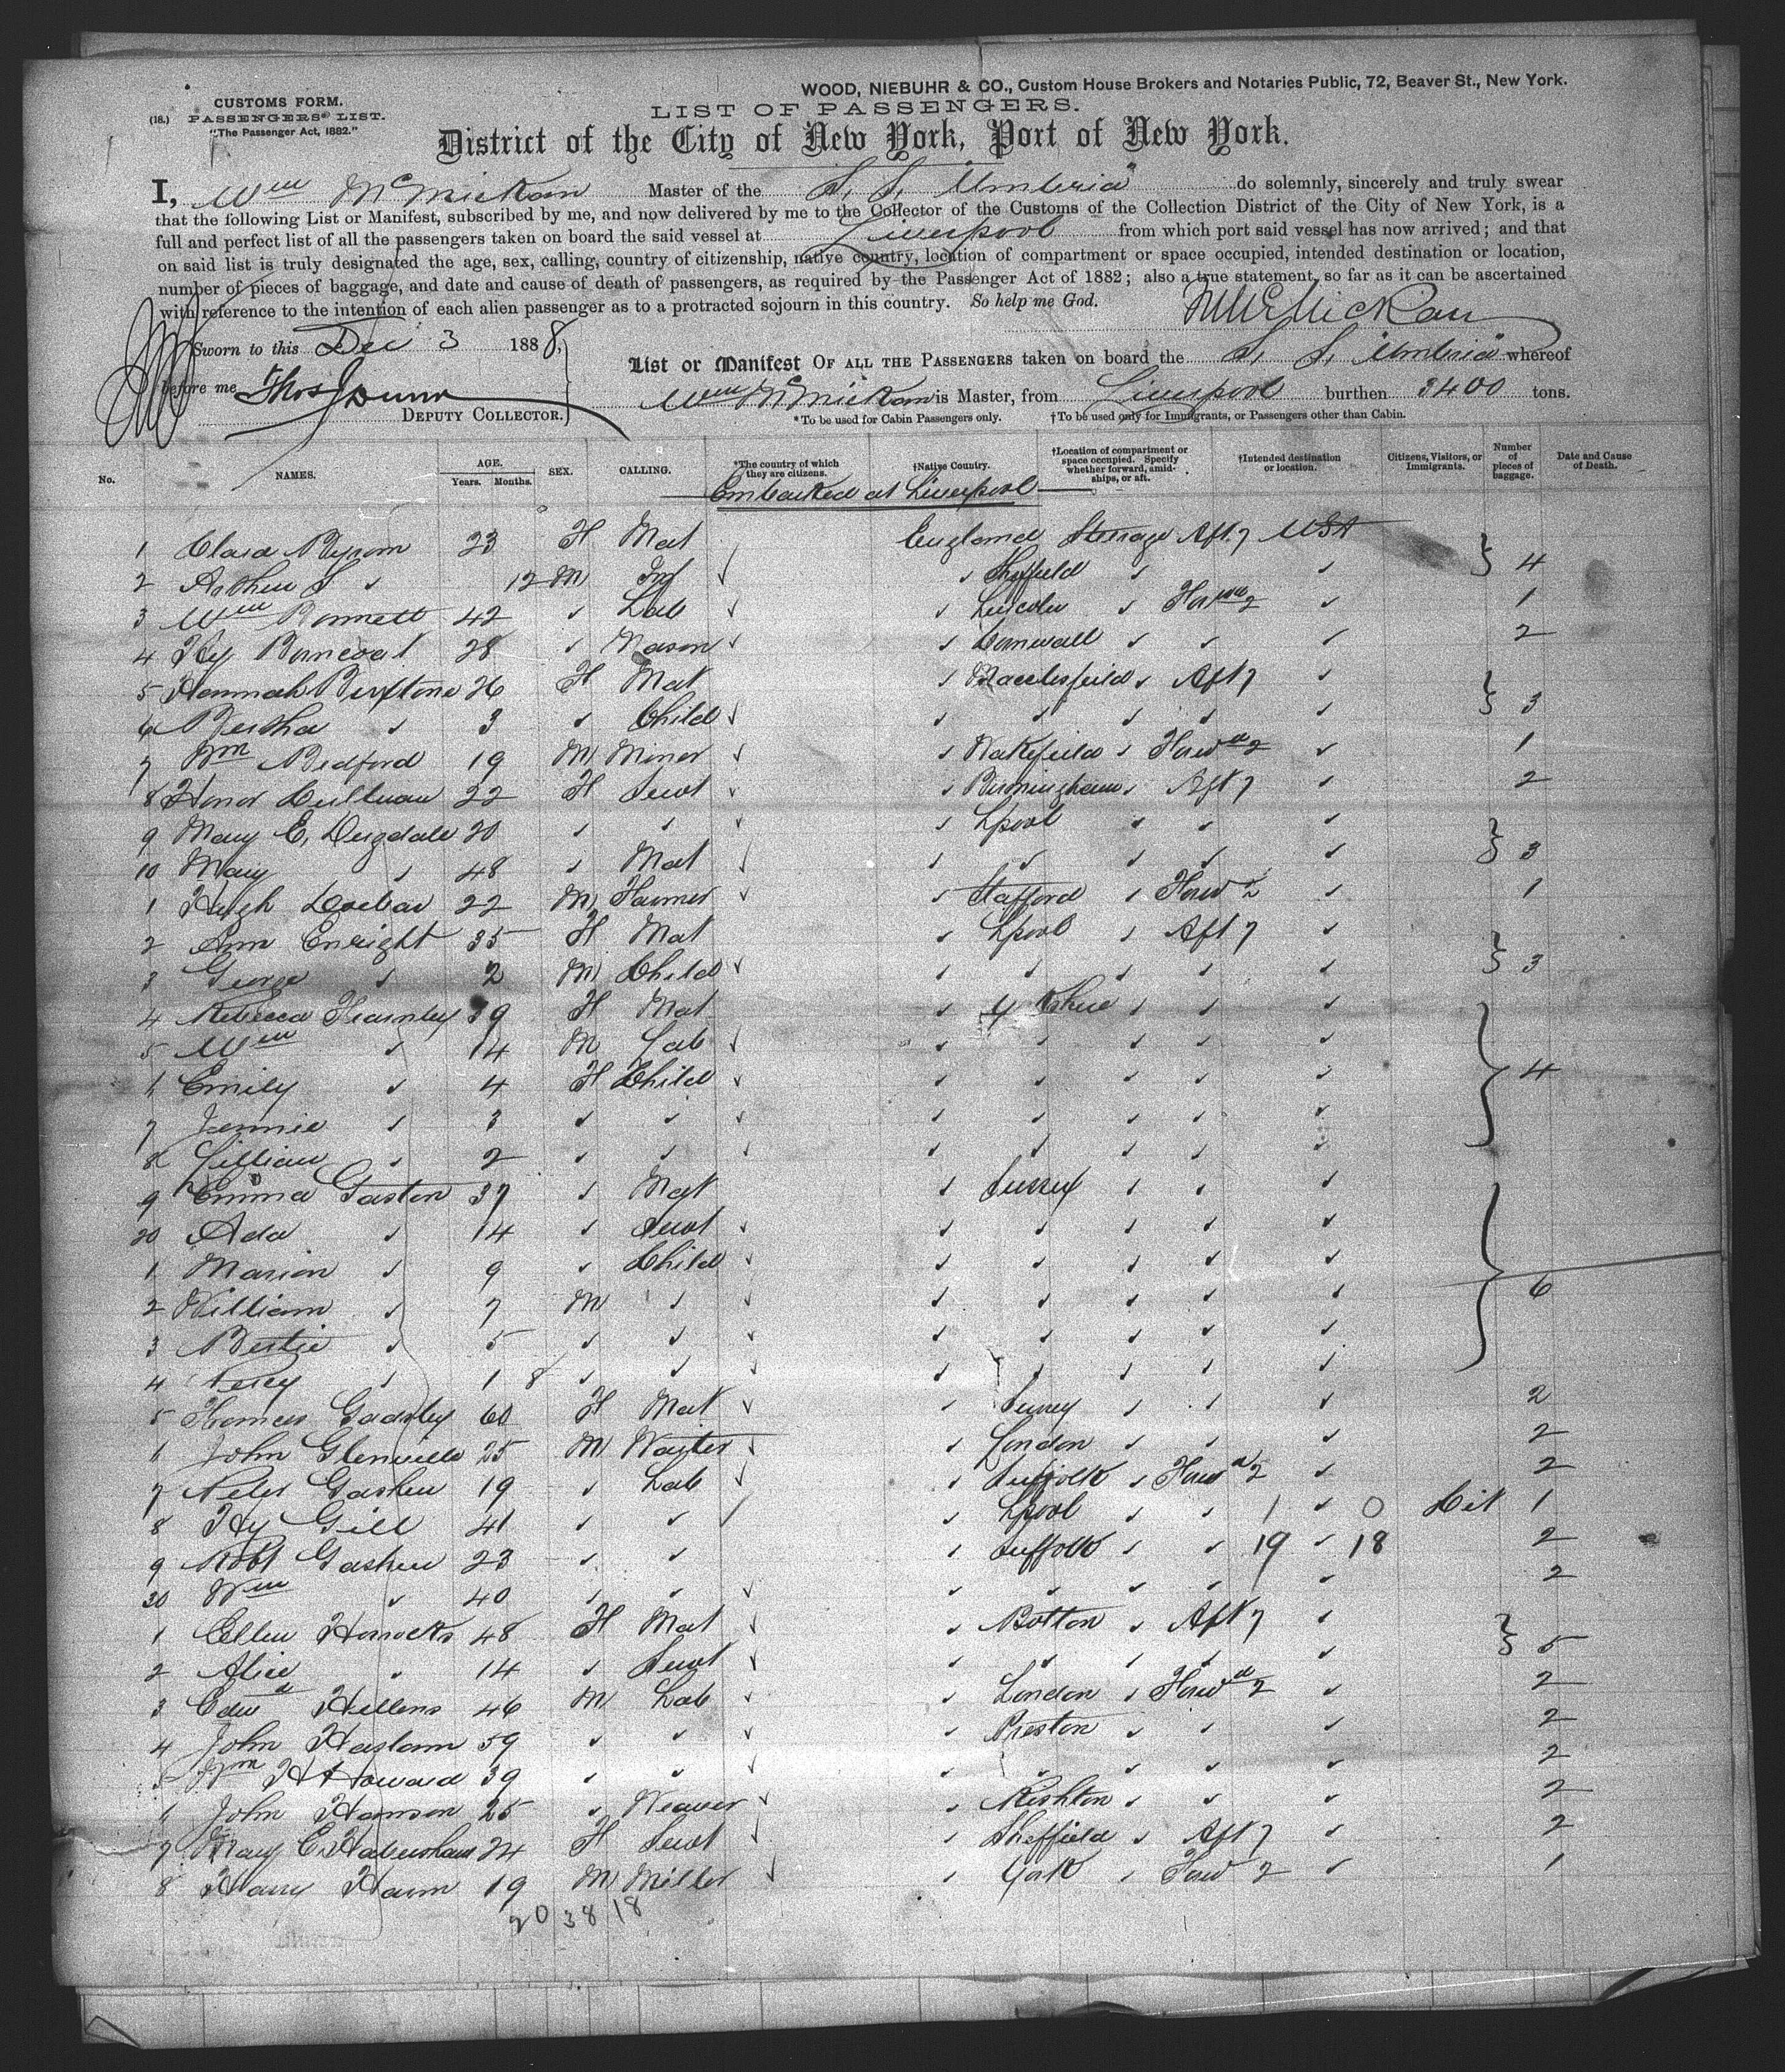 WOOD, NIEBUHR & CO., Custom House Brokers and Notaries Public, 72, Beaver St., New York.
CUSTOMS FORM.
(18.) PASSENGERS' LIST.
"The Passenger Act, 1882."
LIST OF PASSENGERS.
District of the City of New York, Port of New York.
I, Wm McMickan Master of the S. S. Umbria do solemnly, sincerely and truly swear
that the following List or Manifest, subscribed by me, and now delivered by me to the Collector of the Customs of the Collection District of the City of New York, is a
full and perfect list of all the passengers taken on board the said vessel at Liverpool from which port said vessel has now arrived; and that
on said list is truly designated the age, sex, calling, country of citizenship, native country, location of compartment or space occupied, intended destination or location,
number of pieces of baggage, and date and cause of death of passengers, as required by the Passenger Act of 1882; also a true statement, so far as it can be ascertained
with reference to the intention of each alien passenger as to a protracted sojourn in this country. So help me God. WMcMickan
Sworn to this Dec 3 1888,
before me Thos J Dunn
DEPUTY COLLECTOR.
List or Manifest OF ALL THE PASSENGERS taken on board the S. S. Umbria whereof
Wm McMickan is Master, from Liverpool burthen 3400 tons.
*To be used for Cabin Passengers only. †To be used only for Immigrants, or Passengers other than Cabin.
No. NAMES. AGE. Years. Months. SEX. CALLING. *The country of which they are citizens. †Native Country. †Location of compartment or space occupied. Specify whether forward, amidships, or aft. †Intended destination or location. Citizens, Visitors, or Immigrants. Number of pieces of baggage. Date and Cause of Death.
Embarked at Liverpool
1 Clara Byrom 23 F Mat England Steerage Aft 7 USA
2 Arthur S " 12 M Inf " Sheffield " " 4
3 Wm Bonnett 42 " Lab " Lincoln " Forwd 2 " 1
4 Hy 28 " Mason " Cornwall " " " 2
5 Hannah 26 F Mat " Macclesfield " Aft 7 "
6 Bertha " 3 " Child " " " " " 3
7 Wm Bedford 19 M Miner " Wakefield " Forwd 2 " 1
8 Honor Cullinan 22 F Servt " Birmingham " Aft 7 " 2
9 Mary E. Dugdale 20 " " " Lpool " " "
10 Mary " 48 " Mat " " " " " 3
1 Hugh 22 M Farmer " Stafford " Forwd 2 " 1
2 Ann Enright 35 F Mat " Lpool " Aft 7 "
3 George " 2 M Child " " " " " 3
4 Rebecca Fearnley 39 F Mat " Yorkshire " " "
5 Wm " 14 M Lab " " " " "
6 Emily " 4 F Child " " " " " 4
7 Jennie " 3 " " " " " " "
8 Lillian " 2 " " " " " " "
9 Emma Gaston 37 " Mat " Sussex " " "
20 Ada " 14 " Servt " " " " "
1 Marion " 9 " Child " " " " "
2 William " 7 M " " " " " " 6
3 Bertie " 5 " " " " " " "
4 Percy " 1 8 " " " " " "
5 Frances Gadsby 60 F Mat " Surrey " " " 2
6 John Glenville 25 M Waiter " London " " " 2
7 Peter Gashen 19 " Lab " Suffolk " Forwd 2 " 2
8 Hy Gill 41 " " " Lpool " " 1 " 0 Cit 1
9 Robt Gashen 23 " " " Suffolk " " 19 " 18 2
30 Wm " 40 " " " " " " " 2
1 Ellen Horrocks 48 F Mat " Bolton " Aft 7 "
2 Alice " 14 " Servt " " " " " 5
3 Edwd Hellens 46 M Lab " London " Forwd 2 " 2
4 John Haslam 59 " " " Preston " " " 2
5 Wm H Howard 39 " " " " " " " 2
6 John Hanson 25 " Weaver " Rishton " " " 2
7 Mary E. Habersham 24 F Servt " Sheffield " Aft 7 " 2
8 Harry 19 M Miller " York " Forwd 2 " 1
20 38 18